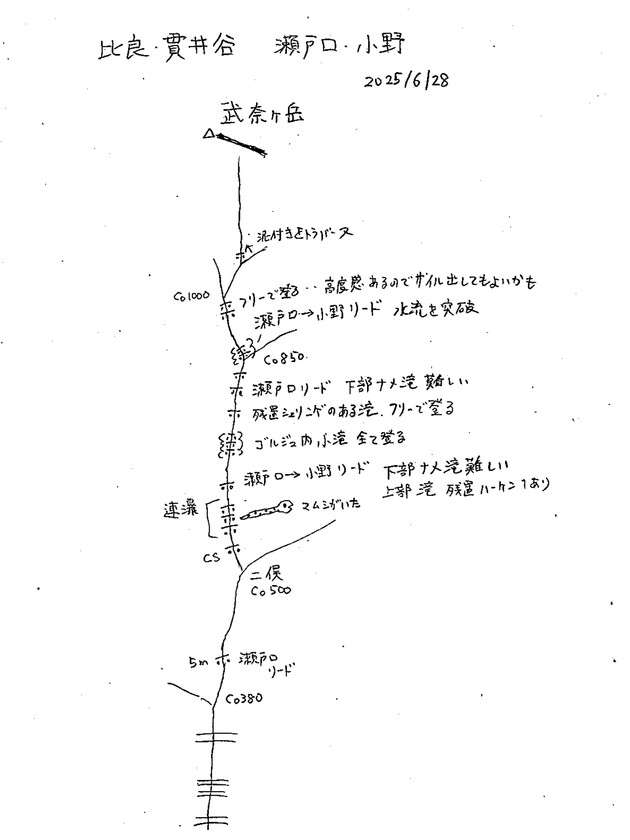 比良・貫井谷 瀬戸口・小野
2025/6/28
武奈ヶ岳
泥付きをトラバース
Co1000
フリーで登る‥高度感あるのでザイル出してもよいかも
瀬戸口→小野リード 水流を突破
Co850
瀬戸口リード 下部ナメ滝難しい
残置シュリンゲのある滝、フリーで登る
ゴルジュ内小滝 全て登る
瀬戸口→小野リード 下部ナメ滝難しい
上部滝 残置ハーケン1あり
連瀑
マムシがいた
CS
二俣
Co500
5m
瀬戸口
リード
Co380